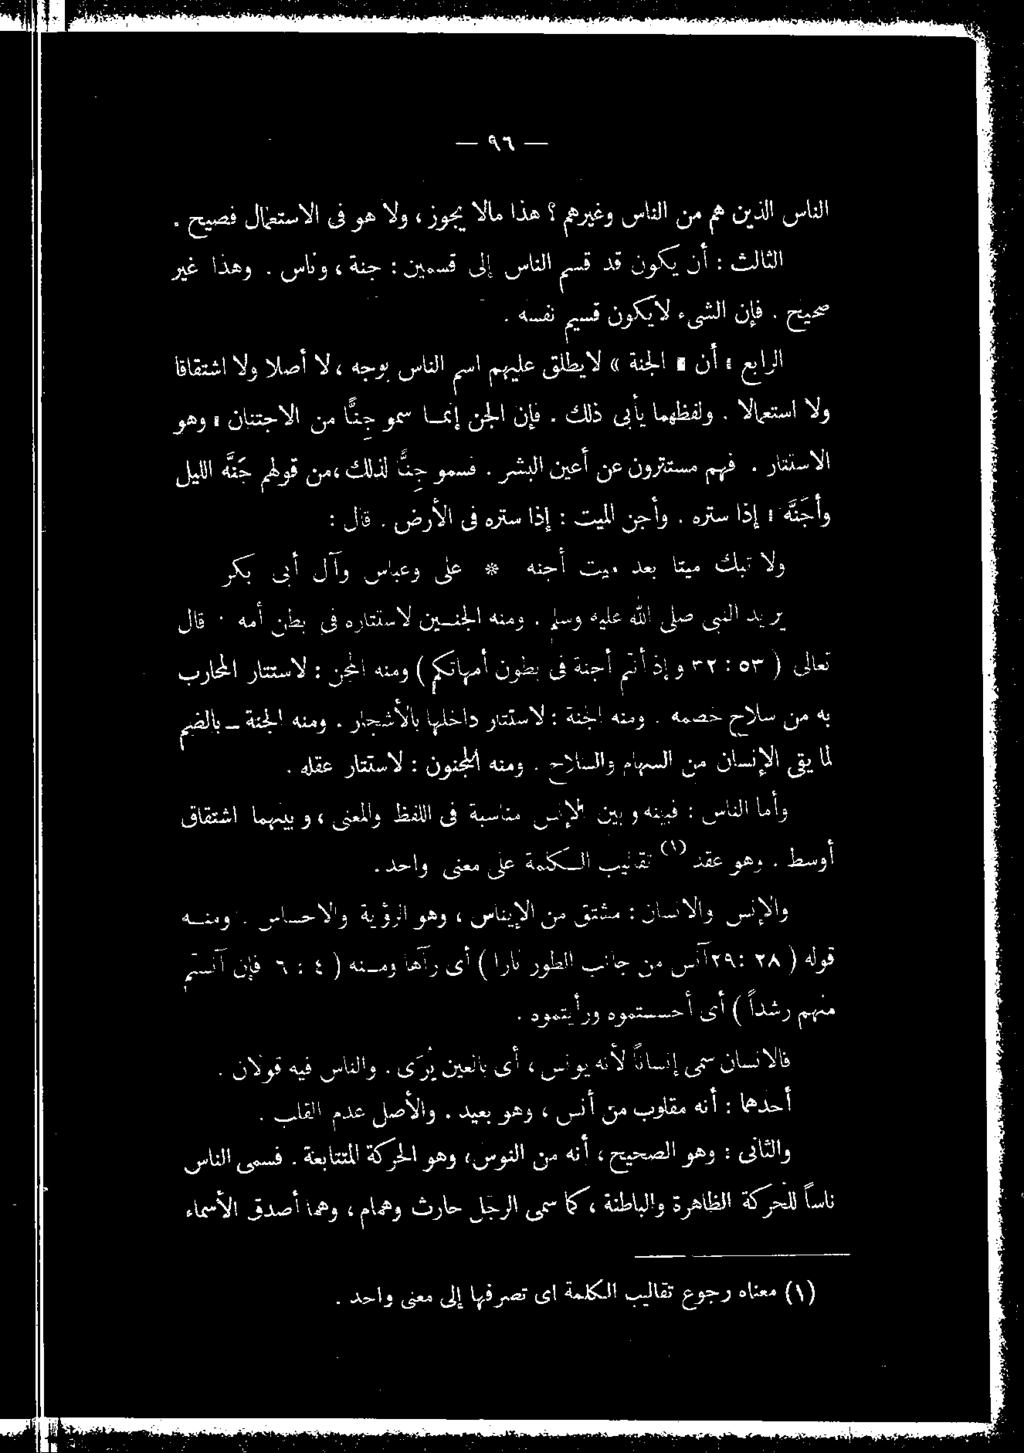 — ٩٦ —
الناس الذين هم من الناس وغيرهم ؟ هذا مالا يجوز ، ولا هو فى الاستعمال فصيح .
الثالث : أن يكون قد قسم الناس إلى قسمين : جنة ، وناس . وهذا غير
صحيح . فإن الشىء لايكون قسيم نفسه .
الرابع : أن « الجنة » لايطلق عليهم اسم الناس بوجه ، لا أصلا ولا اشتقاقا
ولا استعمالا . ولفظهما يأبى ذلك . فإن الجن إنما سمو جِنًّا من الاجتنان ، وهو
الاستتار . فهم مستترون عن أعين البشر . فسمو جِنًّا لذلك ، من قولهم جَنَّه الليل
وأجَنَّه : إذا ستره . وأجن الميت : إذا ستره فى الأرض . قال :
ولا تبك ميتا بعد ميت أجنه * على وعباس وآل أبى بكر
يريد النبى صلى الله عليه وسلم . ومنه الجنين لاستتاره فى بطن أمه . قال
تعالى ( ٥٣ : ٣٢ وإذ أنتم أجنة فى بطون أمهاتكم ) ومنه المجن : لاستتار المحارب
به من سلاح خصمه . ومنه الجنة : لاستتار داخلها بالأشجار . ومنه الجنة – بالضم
لما يقى الإنسان من السهام والسلاح . ومنه المجنون : لاستتار عقله .
وأما الناس : فبينه وبين الإنس مناسبة فى اللفظ والمعنى ، وبينهما اشتقاق
أوسط . وهو عقد (١) تقاليب الكلمة على معنى واحد .
والإنس والانسان : مشتق من الإيناس ، وهو الرؤية والاحساس . ومنه
قوله ( ٢٨ : ٢٩ آنس من جانب الطور نارا ) أى رآها ومنه ( ٤ : ٦ فإن آنستم
منهم رشداً ) أى أحسستموه ورأيتموه .
فالانسان سمى إنساناً لأنه يونس ، أى بالعين يُرَى . والناس فيه قولان .
أحدهما : أنه مقلوب من أنس ، وهو بعيد . والأصل عدم القلب .
والثانى : وهو الصحيح ، أنه من النوس ، وهو الحركة المتتابعة . فسمى الناس
ناساً للحركة الظاهرة والباطنة ، كما سمى الرجل حارث وهمام ، وهما أصدق الأسماء
(١) معناه رجوع تقاليب الكلمة اى تصرفها إلى معنى واحد .